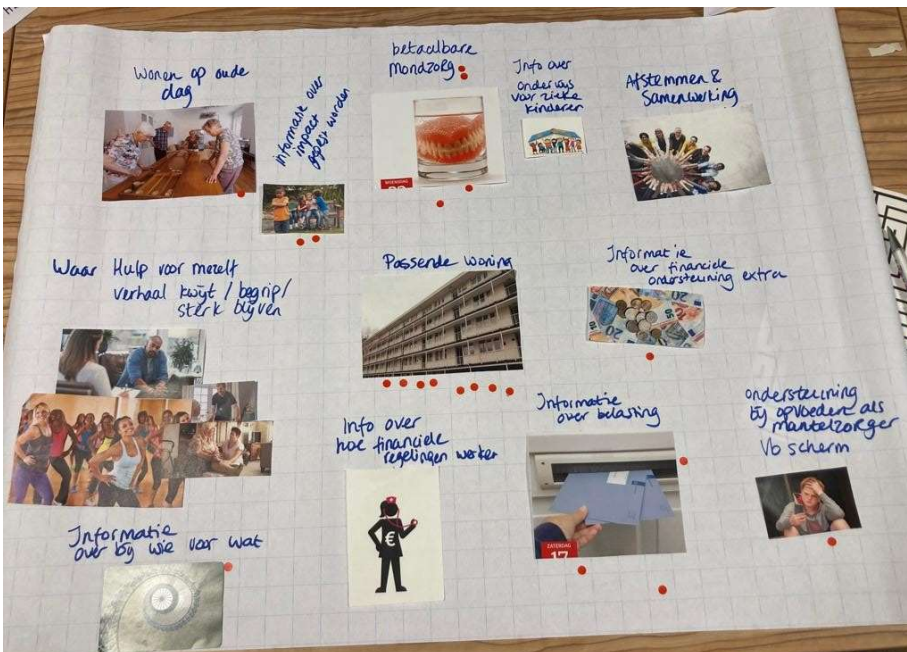 Wonen op oude
dag
informatie over
impact
gepest worden
betaalbare
mondzorg
Info over
onderwijs
voor zieke
kinderen
Afstemmen &
Samenwerking
Waar Hulp voor mezelf
verhaal kwijt / begrip /
sterk blijven
Passende woning
Informatie
over financiele
ondersteuning extra
Info over
hoe financiele
regelingen werken
€
Informatie
over belasting
ZATERDAG
17
ondersteuning
bij opvoeden als
mantelzorger
Vb scherm
Informatie
over bij wie voor wat
WOENSDAG
20